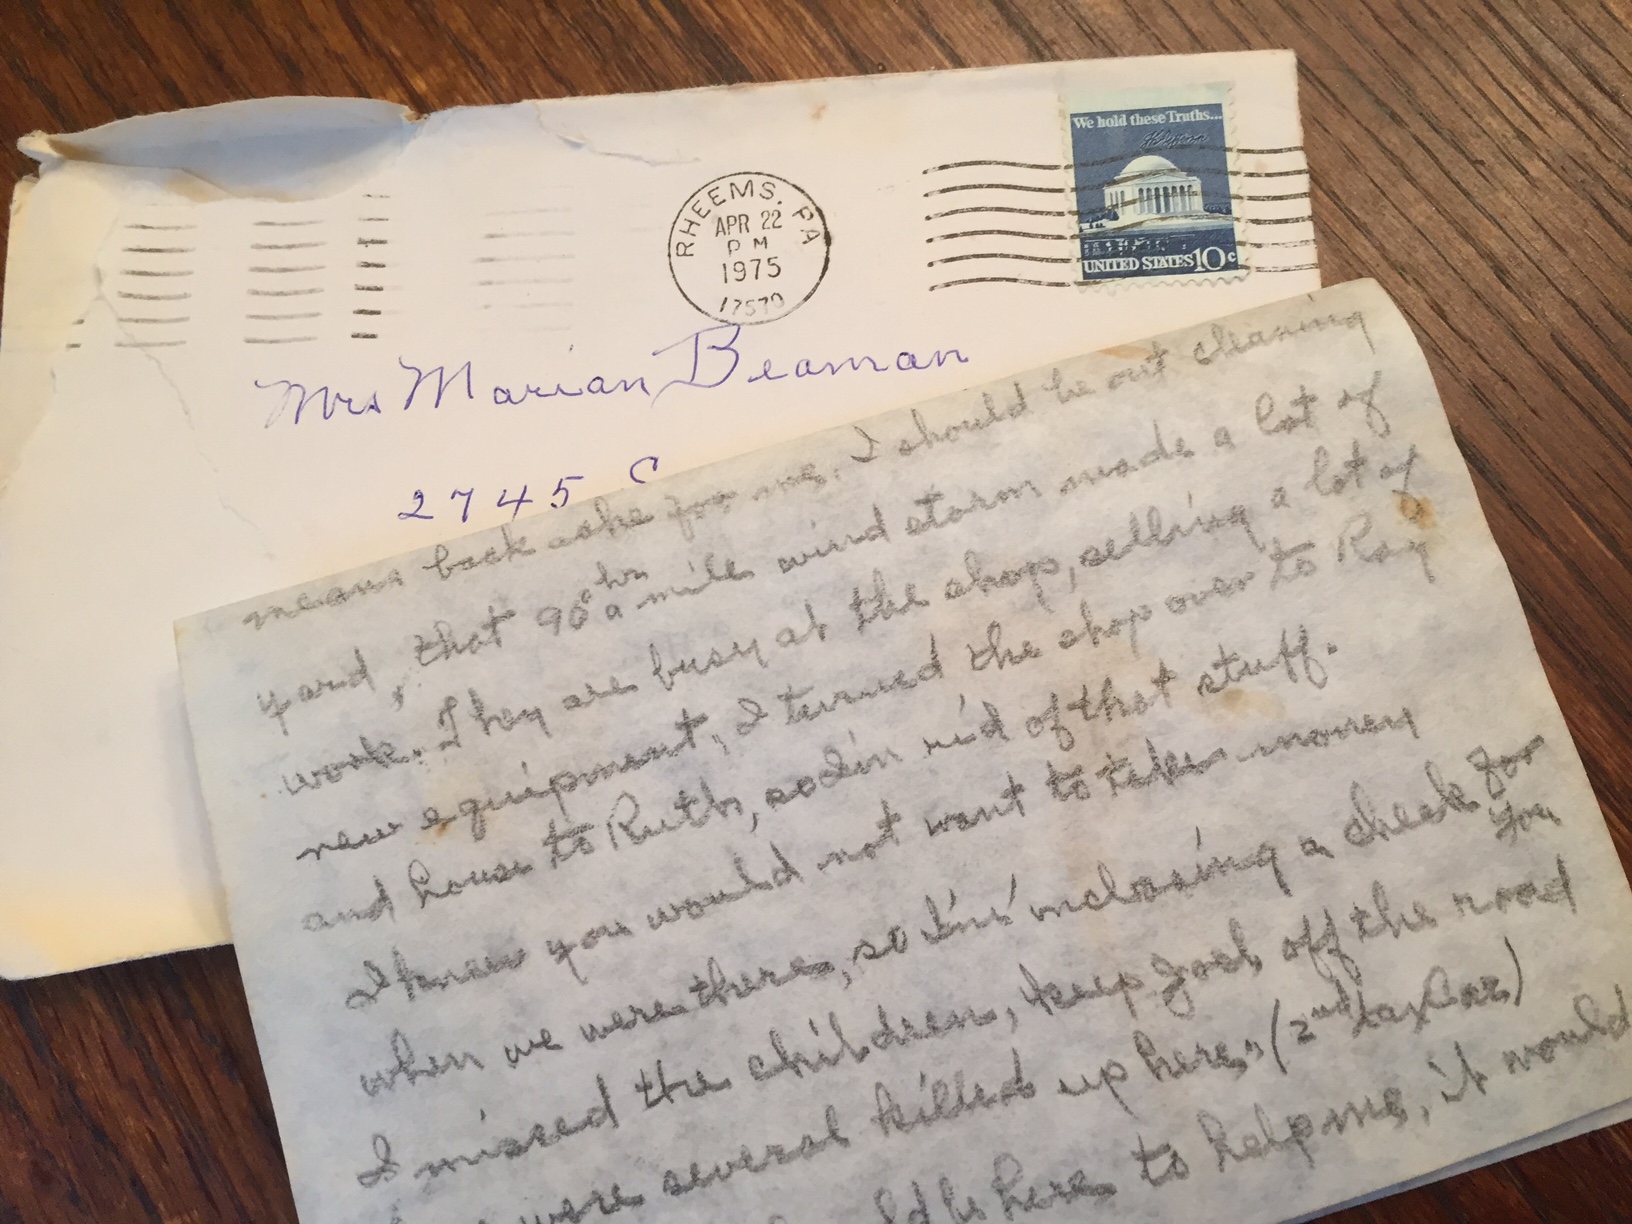 RHEEMS, PA
APR 22
PM
1975
17570
We hold these Truths...
UNITED STATES 10c
Mrs Marian Beaman
2745
means back ake for me. I should be out cleaning
yard, that 90 a hr mile wind storm made a lot of
work. They are busy at the shop, selling a lot of
new equipment, I turned the shop over to Ray
and house to Ruth, so I'm rid of that stuff.
I knew you would not want to take money
when we were there, so I'm inclosing a check for you
I missed the children, keep Joel off the road
were several killed up here. (2nd by Car)
here to help me, it would